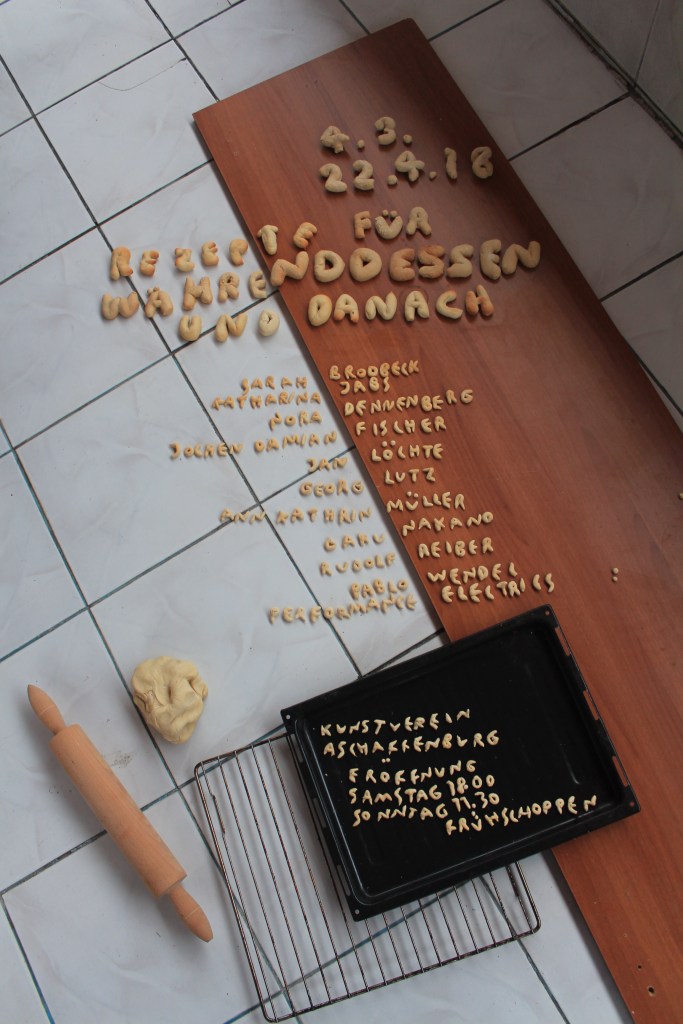 4.3.
22.4.18
REZEPTE FÜR
WÄHRENDDESSEN
UND DANACH
SARAH BRODBECK
KATHARINA JABS
NORA DENNENBERG
JOCHEN DAMIAN FISCHER
JAN LÖCHTE
GEORG LUTZ
ANN KATHRIN MÜLLER
NAKANO
RUDOLF REIBER
PABLO WENDEL
PERFORMANCE ELECTRICS
KUNSTVEREIN
ASCHAFFENBURG
ERÖFFNUNG
SAMSTAG 18.00
SONNTAG 11.30
FRÜHSCHOPPEN